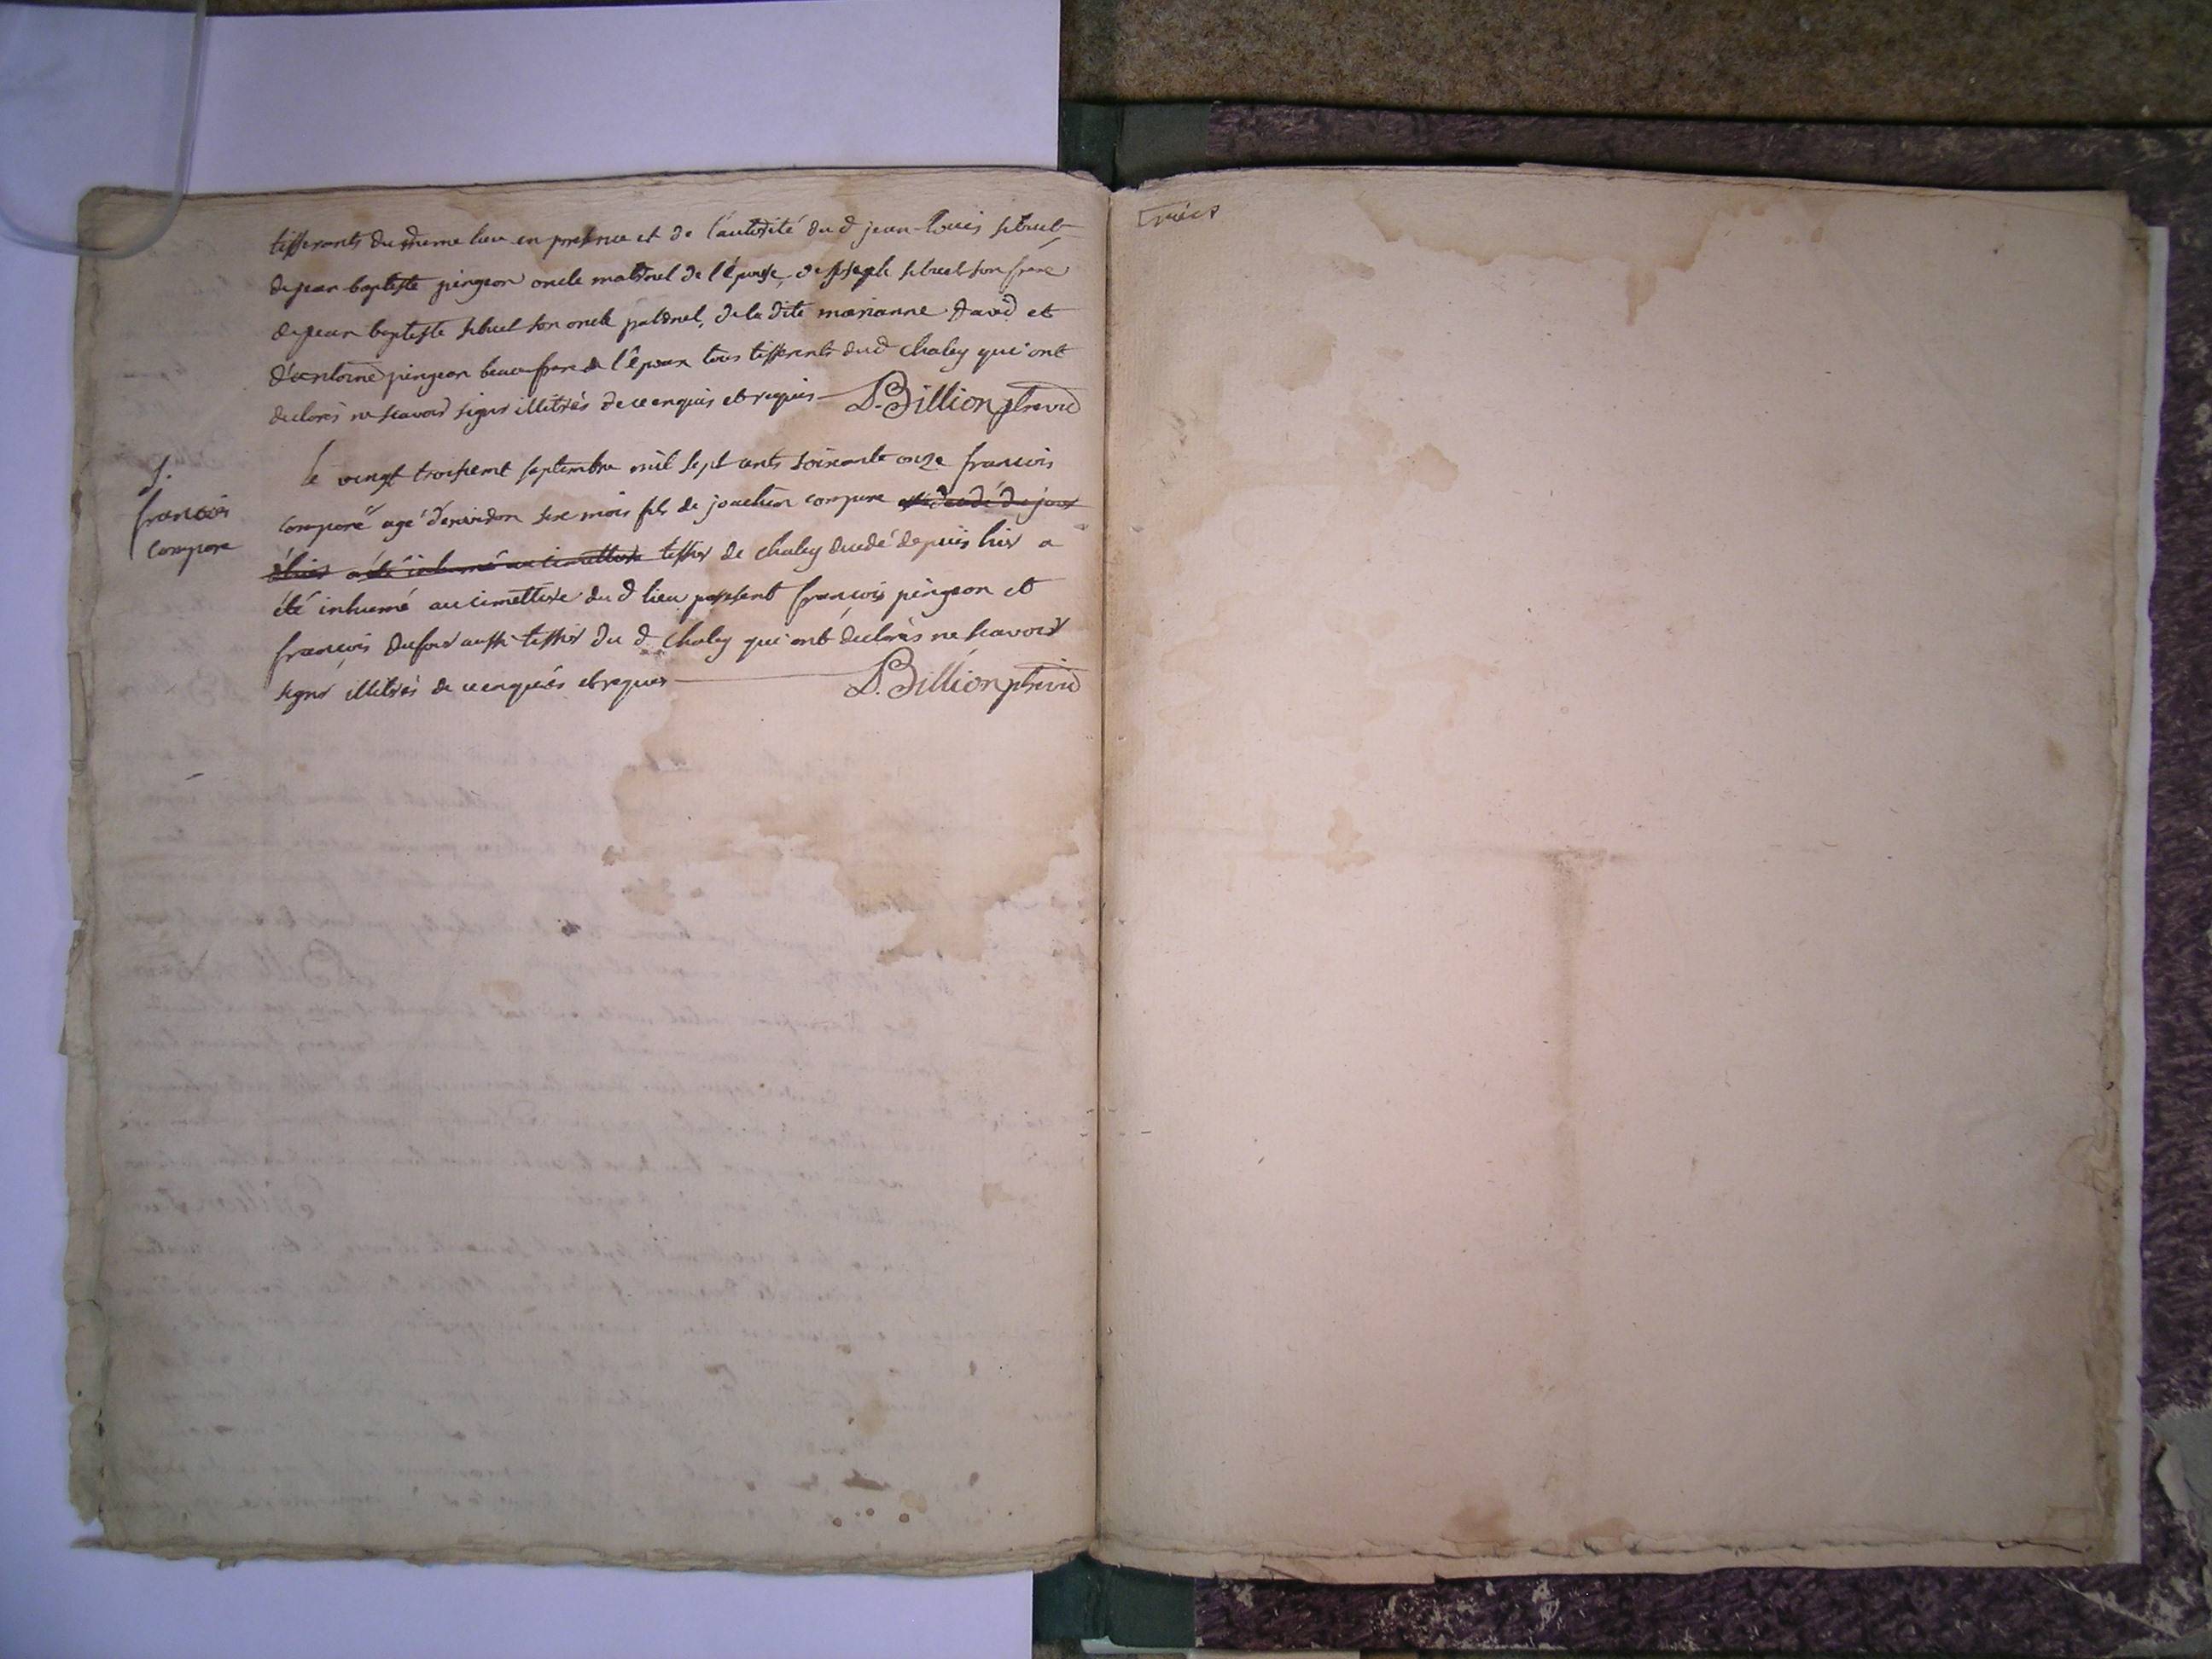 tisserants du meme lieu en presence et de l'autorité du d jean-Louis sibuet
de jean baptiste pingeon oncle maternel de l'épouse, de joseph sibuet son frere
de jean baptiste sibuet son oncle paternel, de la dite marianne David et
d'antoine pingeon beau frere de l'époux tous tisserants du d chaley qui ont
declarés ne scavoir signer illitérés de ce enquis et requis D. Billion ptre vic
S.
francois
compare
le vingt troisieme septembre mil sept cents soixante onze francois
compare agé d'environ seze mois fils de joachim compare decedé de jour
d'hier a été inhumé au cimettiere tissier de chaley decedé depuis hier a
été inhumé au cimettiere du d lieu present francois pingeon et
francois Dufour aussi tissier du d chaley qui ont declarés ne scavoir
signer illitérés de ce enquis et requis D. Billion ptre vic